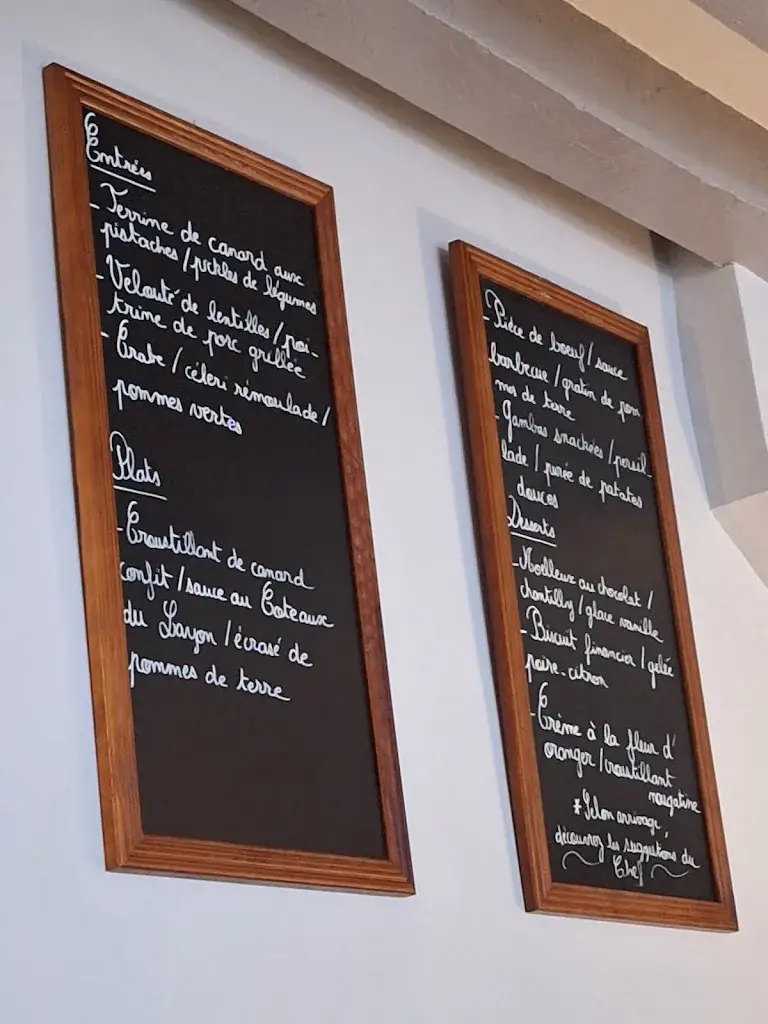 Entrées
- Terrine de canard aux
pistaches / pickles de légumes
- Velouté de lentilles / poi-
trine de porc grillée
- Crabe / céleri rémoulade /
pommes vertes
Plats
- Croustillant de canard
confit / sauce au Coteaux
du Layon / écrasé de
pommes de terre
- Pièce de boeuf / sauce
barbecue / gratin de pom
mes de terre
- Gambas snackées / persil-
lade / purée de patates
douces
Desserts
- Moelleux au chocolat /
chantilly / glace vanille
- Biscuit financier / gelée
poire-citron
- Crème à la fleur d'
oranger / croustillant
nougatine
* Selon arrivage,
découvrez les suggestions du
Chef